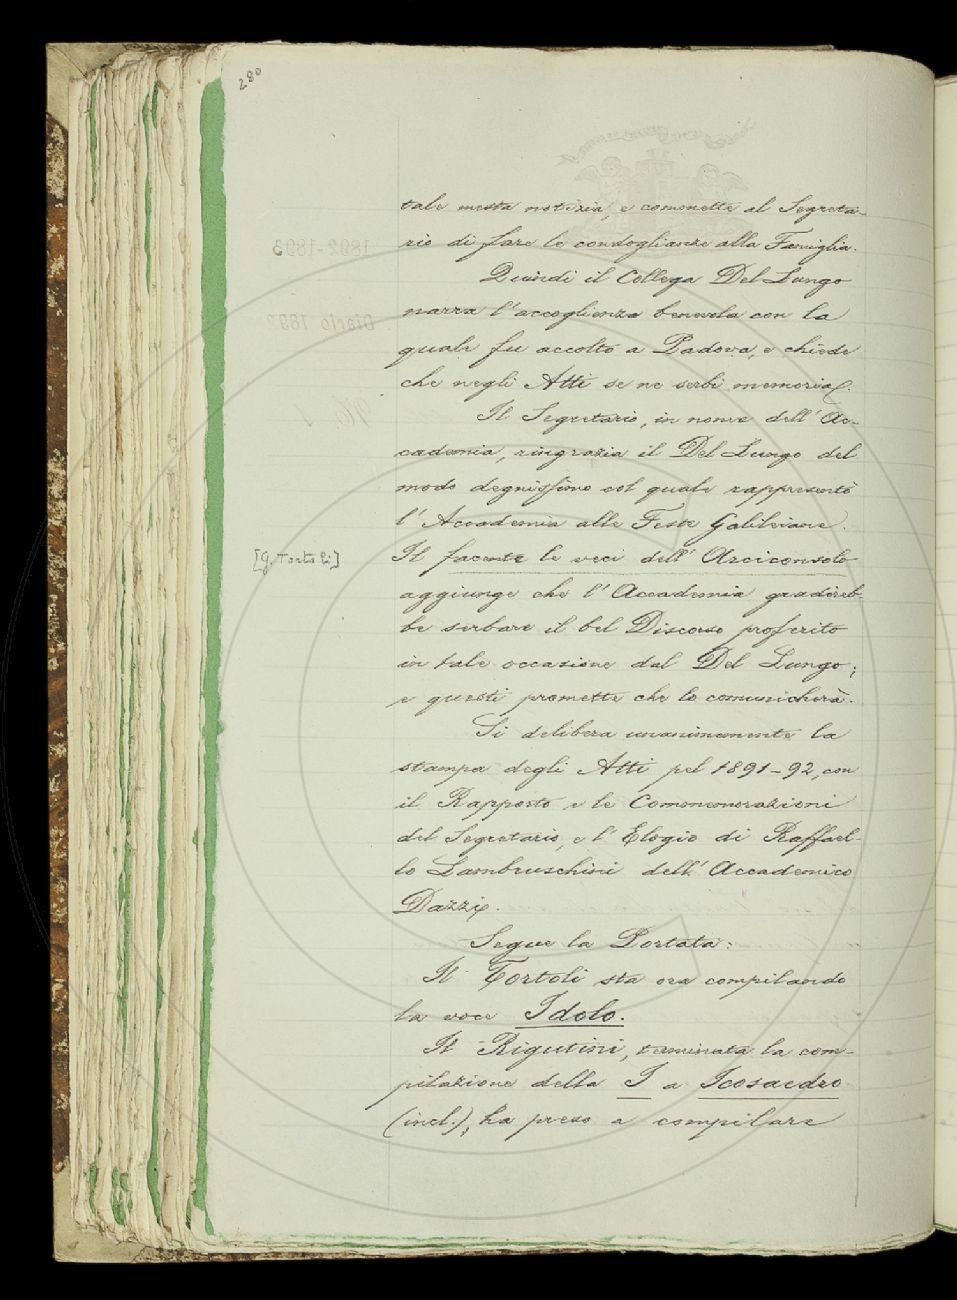 280
tale mesta notizia, e commette al Segreta-
rio di fare le condoglianze alla Famiglia.
Quindi il Collega Del Lungo
narra l'accoglienza benevola con la
quale fu accolto a Padova, e chiede
che negli Atti se ne serbi memoria.
Il Segretario, in nome dell'Ac-
cademia, ringrazia il Del Lungo del
modo degnissimo col quale rappresentò
l'Accademia alle Feste Galileiane.
[G. Tortoli]
Il facente le veci dell'Arciconsolo
aggiunge che l'Accademia gradireb-
be serbare il bel Discorso proferito
in tale occasione dal Del Lungo;
e questi promette che lo comunicherà.
Si delibera unanimemente la
stampa degli Atti pel 1891-92, con
il Rapporto e le Commemorazioni
del Segretario, e l'Elogio di Raffael-
lo Lambruschini dell'Accademico
Dazzi.
Segue la Portata:
Il Tortoli sta ora compilando
la voce Idolo.
Il Rigutini, terminata la com-
pilazione della I a Icosaedro
(incl.), ha preso a compilare